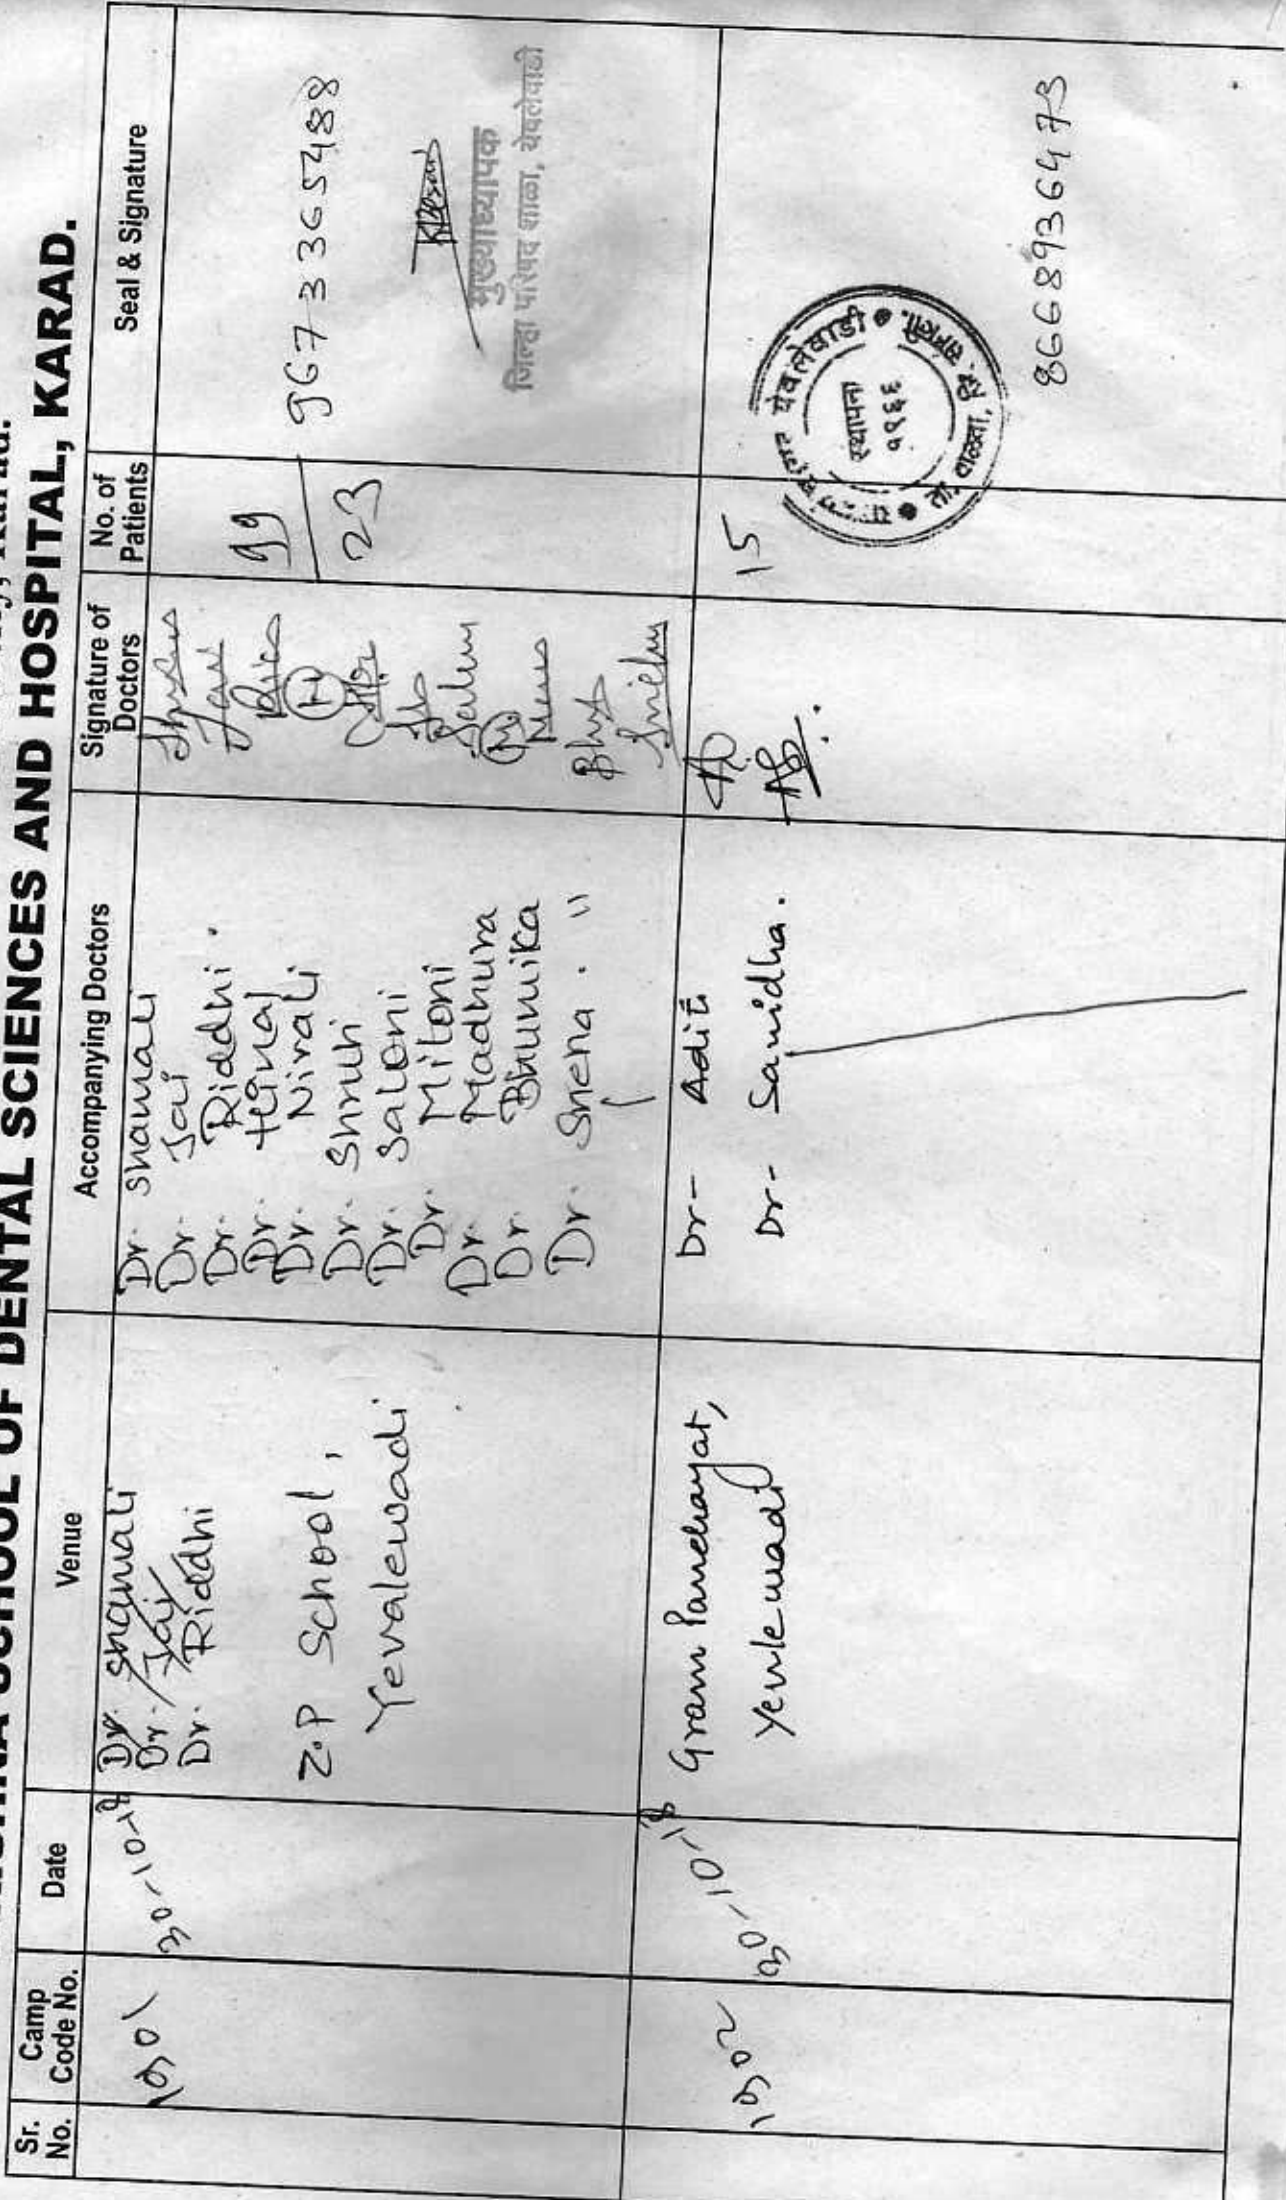 SCHOOL OF DENTAL SCIENCES AND HOSPITAL, KARAD.
Sr. No.
Camp Code No.
Date
Venue
Accompanying Doctors
Signature of Doctors
No. of Patients
Seal & Signature
30-10-18
Dr. Shamali
Dr. Jai
Dr. Riddhi
Z.P School,
Yevalewadi
Dr. Shamali
Dr. Jai
Dr. Riddhi.
Dr. Hinal
Dr. Nirali
Dr. Shruti
Dr. Saloni
Dr. Mitoni
Dr. Madhura
Dr. Bhumika
Dr. Sneha. "
23
9673365488
मुख्याध्यापक
जिल्हा परिषद शाळा, येवलेवाडी
30-10-18
Gram Panchayat,
Yevlewadi
Dr- Aditi
Dr- Sanidha.
15
येवलेवाडी
स्थापना
१९६६
ता. वाळवा, जि. सांगली.
8668936473